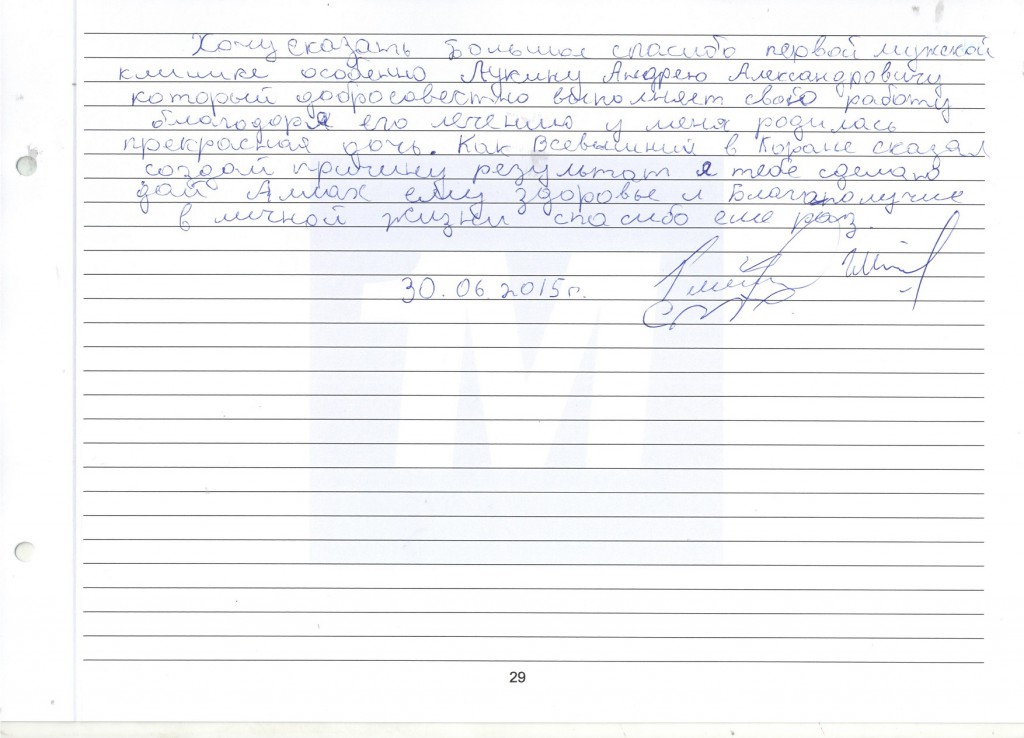 Хочу сказать Большое спасибо первой мужской
клинике особенно Лукину Андрею Александровичу
который добросовестно выполняет свою работу
благодоря его лечению у меня родилась
прекрасная дочь. Как Всевышний в Коране сказал
создай причину результат я тебе сделаю
дай Аллах ему здоровье и Благополучие
в личной жизни спасибо еще раз.
30.06.2015г.
1М
29